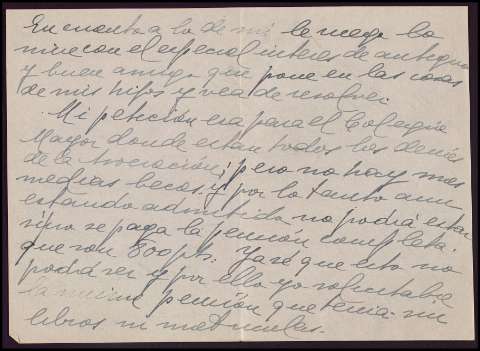 En cuanto a lo de mi le ruego lo
mire con el especial interes de antiguo
y buen amigo que pone en las cosas
de mis hijos y vea de resolver.
Mi petición era para el Colegio
Mayor donde estan todos los demás
de la Asociación; pero no hay mas
medias becas y por lo tanto aun
estando admitido no podrá estar
sino se paga la pensión completa.
que son 800 pts. Ya se que esto no
podrá ser y por ello yo solicitaba
la misma pensión que tenia sin
libros ni matriculas.